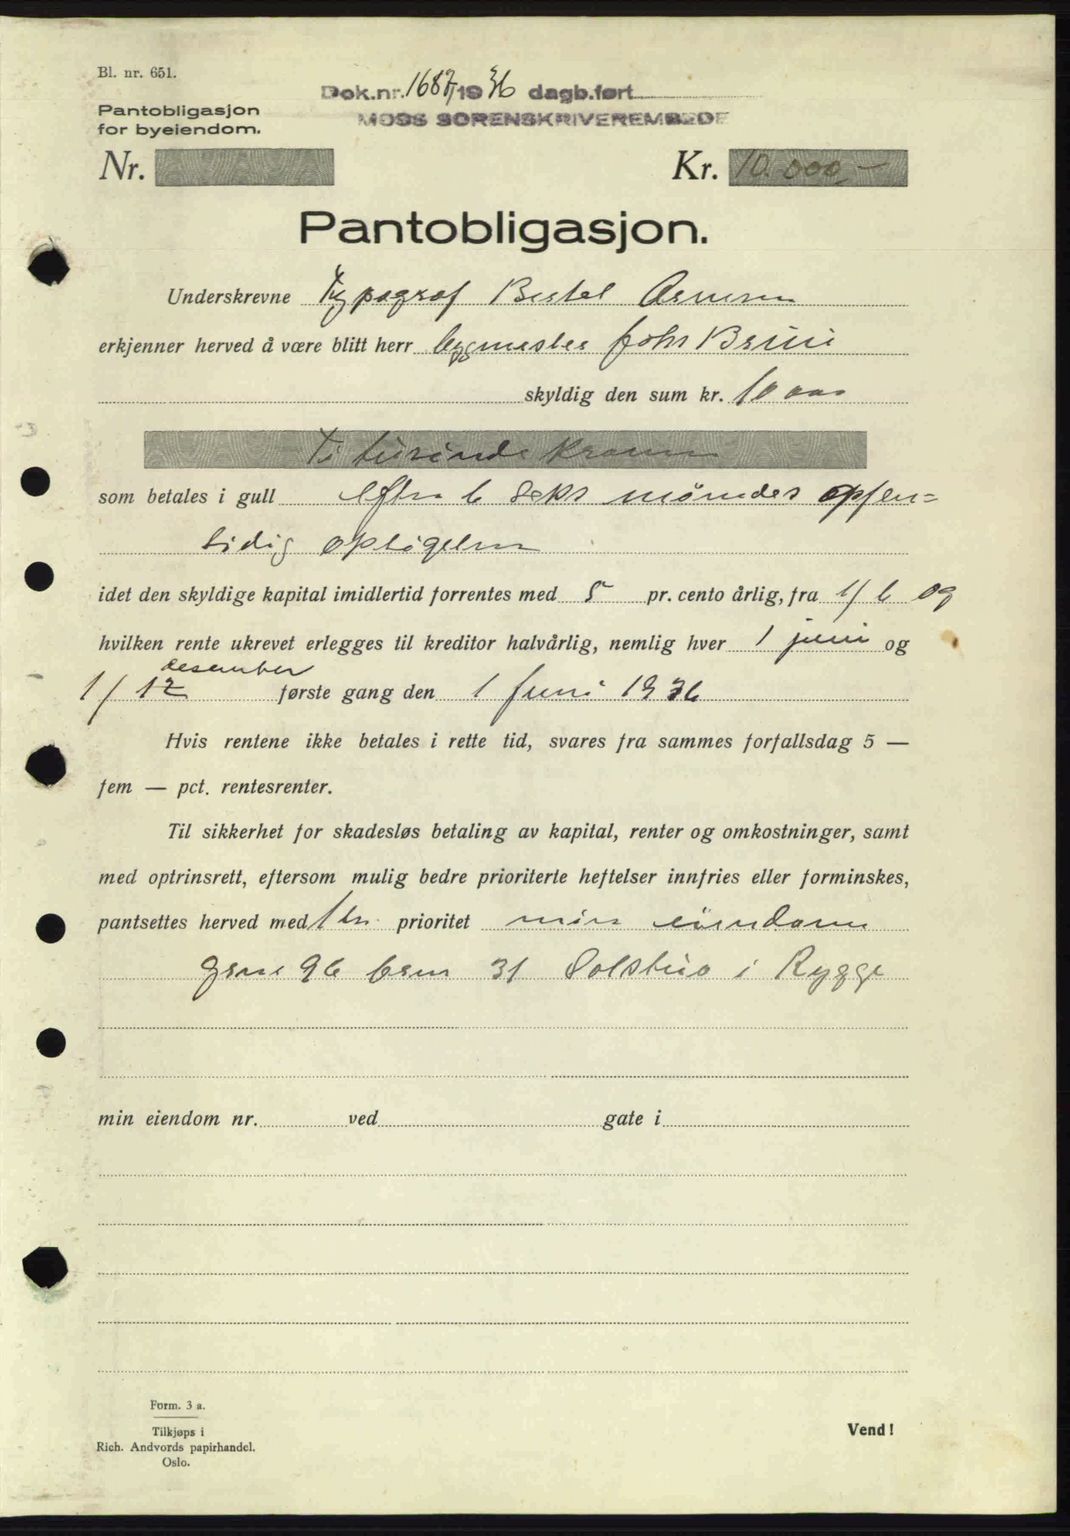 Bl. nr. 651.
Dok.nr. 1687/1936 dagb.ført
Pantobligasjon
for byeiendom.
MOSS SORENSKRIVEREMBEDE
Nr.
Kr. 10.000,-
Pantobligasjon.
Underskrevne Typograf Bertel
erkjenner herved å være blitt herr bygmester Johs Bruu
skyldig den sum kr. 10 000
Ti tusinde kroner
som betales i gull efter 6 seks måneders opsen=
tidig opsigelse
idet den skyldige kapital imidlertid forrentes med 5 pr. cento årlig, fra 1/6 og
hvilken rente ukrevet erlegges til kreditor halvårlig, nemlig hver 1 juni og
desember
1/12 første gang den 1 Juni 1936
Hvis rentene ikke betales i rette tid, svares fra sammes forfallsdag 5 —
fem — pct. rentesrenter.
Til sikkerhet for skadesløs betaling av kapital, renter og omkostninger, samt
med optrinsrett, eftersom mulig bedre prioriterte heftelser innfries eller forminskes,
pantsettes herved med 1ste prioritet min eiendom
gsnr 96 bsnr 31 Solstuo i Rygge
min eiendom nr. ved gate i
Form. 3 a.
Tilkjøps i
Rich. Andvords papirhandel.
Oslo.
Vend!